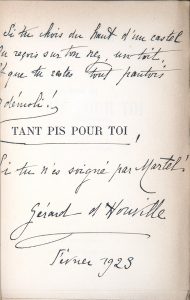 Si tu chois du haut d'un castel
Ou reçois sur ton nez, un toit,
Et que tu restes tout pantois
démoli!
TANT PIS POUR TOI,
Si tu n'es soigné par Martel!
Gérard d'Houville
Février 1923